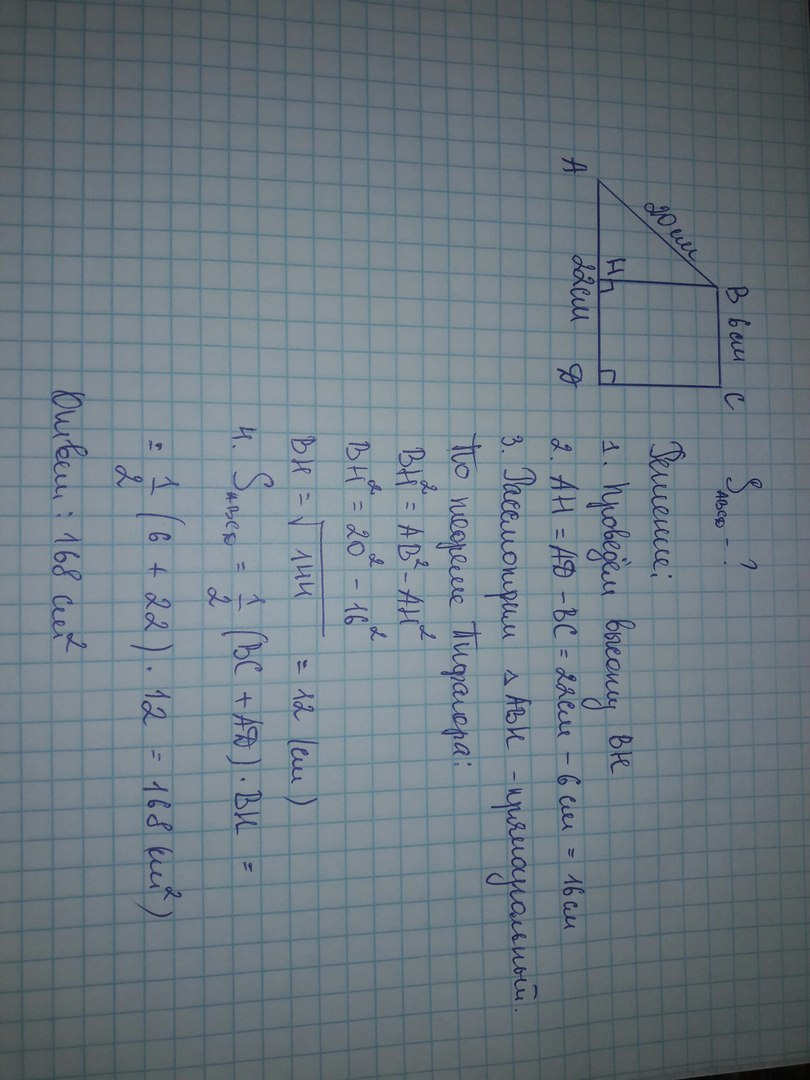 S ABCD - ?
B 6 см C
20 см
H
A 22 см D
Решение:
1. Проведём высоту BH
2. AH = AD - BC = 22 см - 6 см = 16 см
3. Рассмотрим △ ABH - прямоугольный.
По теореме Пифагора:
BH² = AB² - AH²
BH² = 20² - 16²
BH = √144 = 12 (см)
4. S ABCD = 1/2 (BC + AD) · BH =
= 1/2 (6 + 22) · 12 = 168 см²)
Ответ: 168 см²